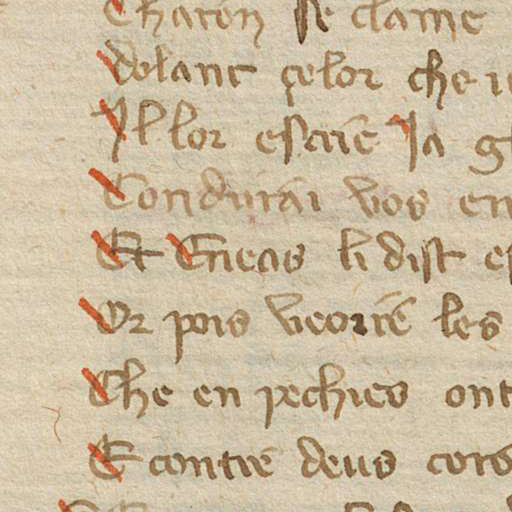 Charon se clame
Delant celor che
Il lor escrie Ja
Condurai vos en
Et Eneas li dist
Or pois veoire les
Che en pechies ont
E contre deus cors